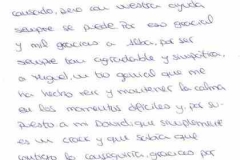 cansado, pero con vuestra ayuda
siempre se puede. Por eso especial
y mil gracias a Alba, por ser
siempre tan agradable y simpática,
a Miguel, un tio genial que me
ha hecho reir y mantener la calma
en los momentos dificiles y, por su-
puesto a mi David: que simplemente
es un crack y que sabía que
juntos lo conseguiría, gracias por